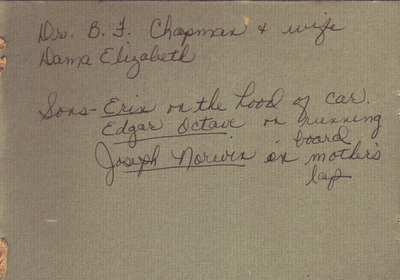 Dr. B. F. Chapman & wife
Dama Elizabeth
Sons - Erix on the hood of car.
Edgar Octave on running
board
Joseph Norwin on mother's
lap